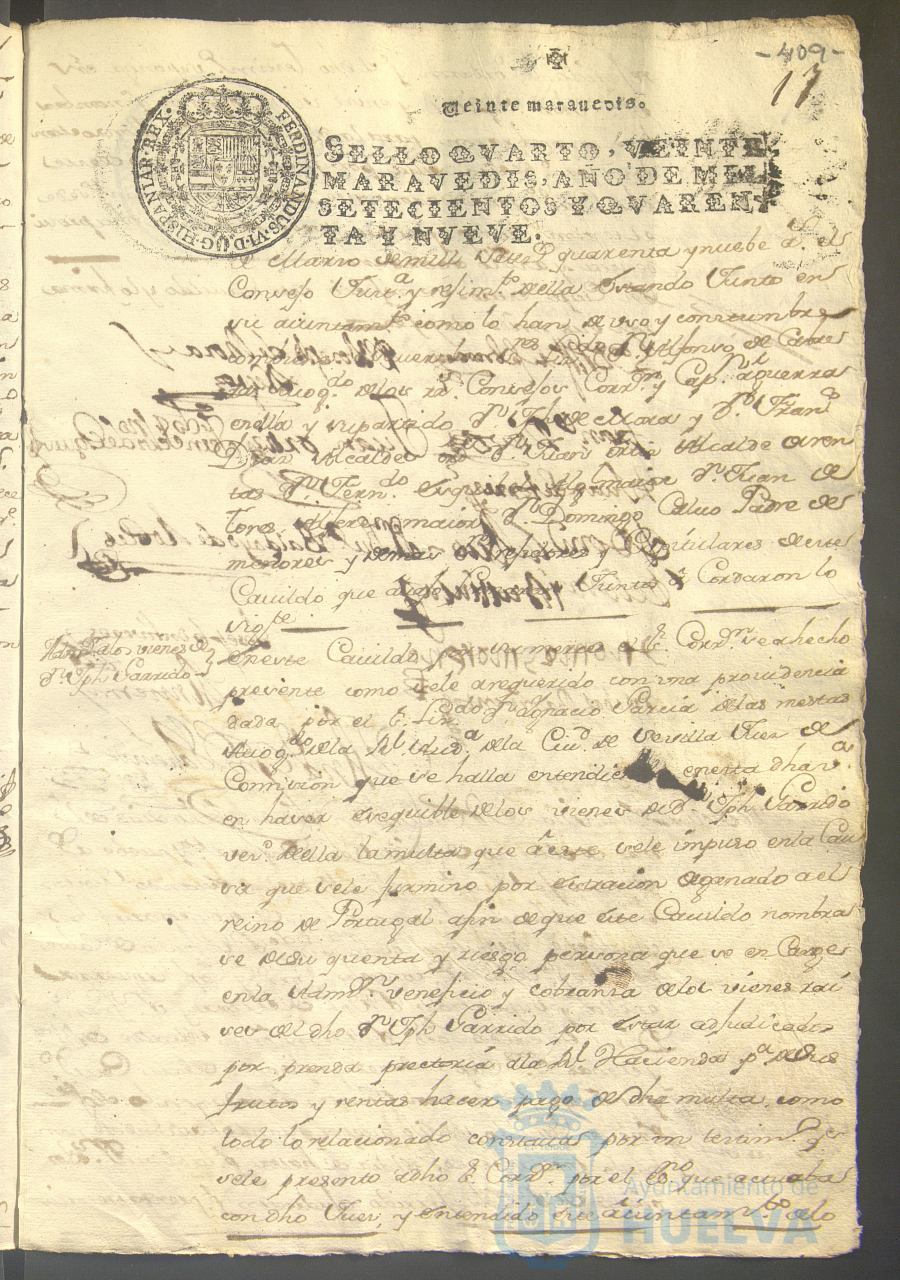 -409-
17
Veinte maravedis.
SELLO QVARTO, VEINTE
MARAVEDIS, AÑO DE MIL
SETECIENTOS Y QVAREN-
TA Y NVEVE.
FERDINANDUS. VI. D. G. HISPANIAR. REX.
Marzo de mill Setez.s quarenta y nuebe a.s el
Consejo Just.a y rejim.to della estando Junto en
su aiuntam.to como lo han de uso y constumbre
Alfonso de
Auog.do de los r.s Consejos Corr.or y Cap.n aguerra
enella y supartido d.n Jph de Mora y d.n Fran.co
Diaz Alcaldes d.n Juan Alcalde
d.n Fern.do maior d.n Juan de
Tores alferes maior d.n Domingo Caluo Padre de
menores y demas Capitulares deeste
Cauildo que Juntos a Cordaron lo
sig.te
Adm.on de los vienes de
d.n Jph Garrido
eneste Cauildo su merced el S.r Corr.or se a hecho
presente como sele arequerido con una providencia
dada por el S.r Liz.do d.n Ygnacio Garcia delas mestas
Auog.do dela R.l Aud.a dela Ciu.d de Sevilla Juez de
Comision que se halla entendie enesta dha v.a
en haver exequible delos vienes de D. Jph Garrido
vez.o della la multa que a este sele impuso enla Cau
sa que sele fulmino por estracion de ganado a el
reino de Portugal afin deque este Cauildo nombra
se desu quenta y riesgo persona que se en Cargue
enla Adm.on veneficio y cobranza delos vienes rai
ses del dho d.n Jph Garrido por estar adjudicados
por prenda pretoria ala R.l Hacienda p.a desus
frutos y rentas hacer pago de dha multa, como
todo lo relacionado constaua por un testim.o q.e
sele presento adho S.r Corr.or por el Es.no que actuaba
con dho Juez, y entendido su aiuntam.to delo
Ayuntamiento de
HUELVA